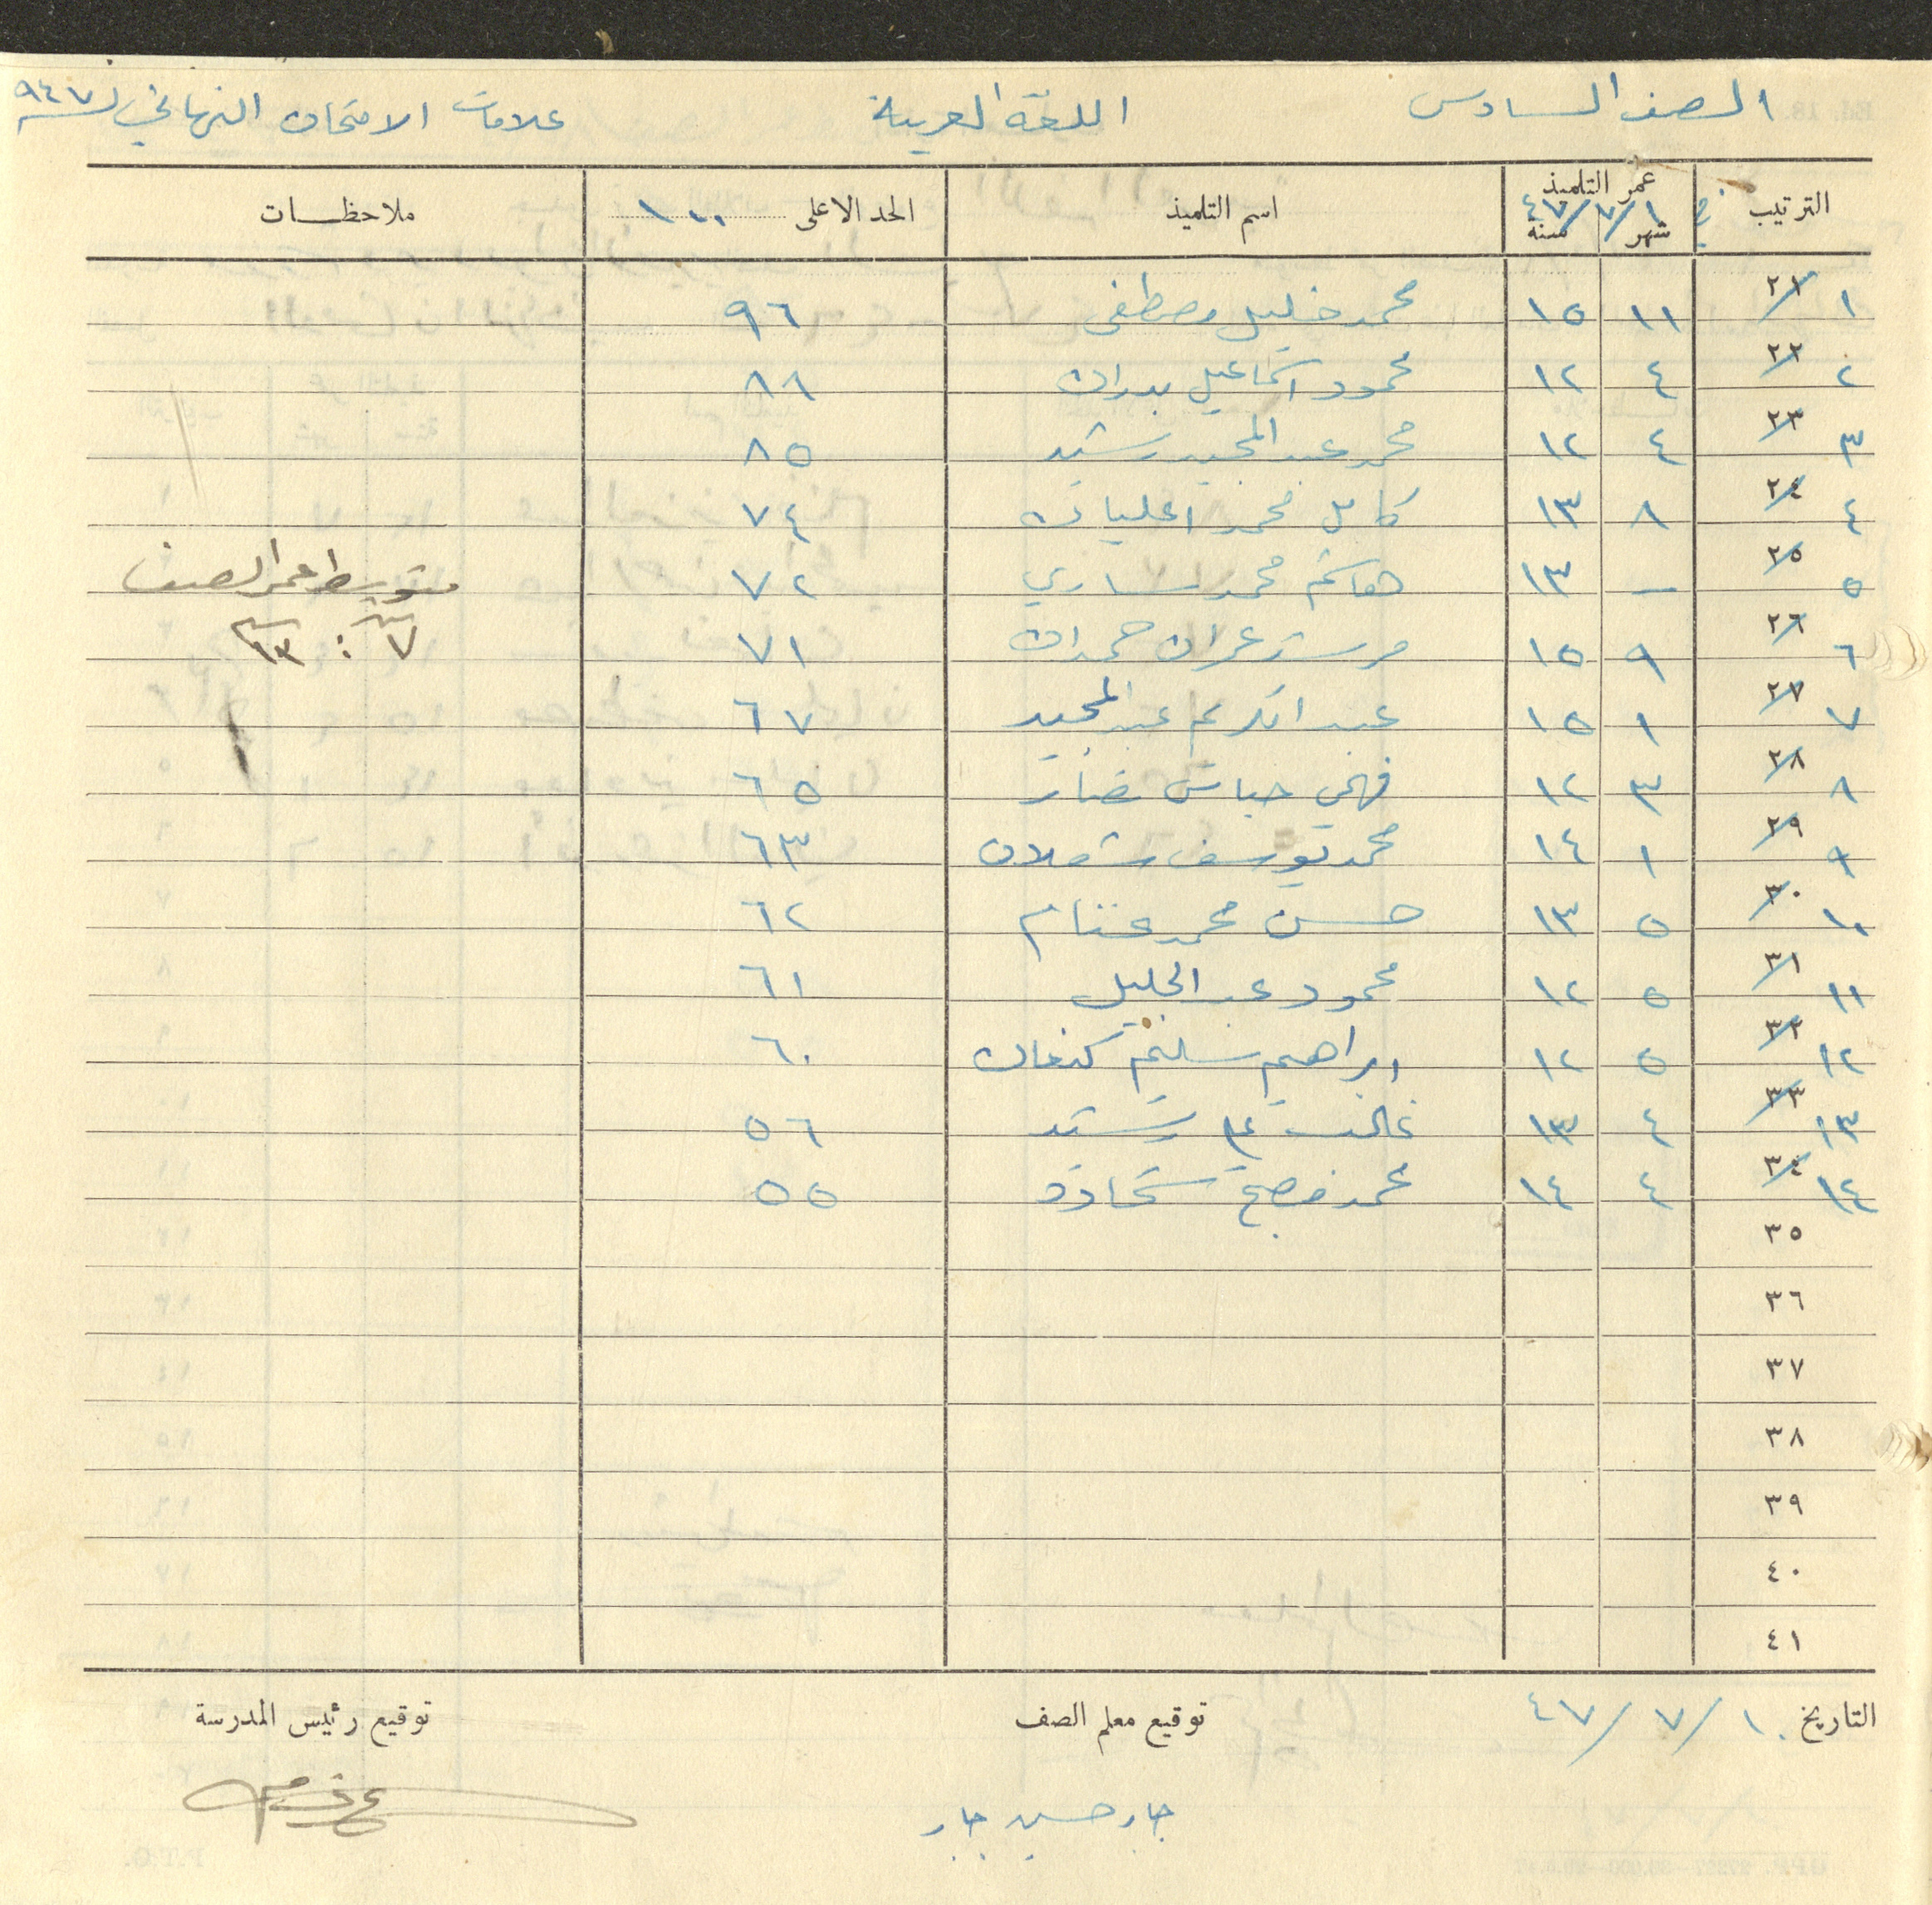 الصف السادس اللغة العربية علامات الامتحان النهائي لسنة ٩٤٧
الترتيب في ١/٧/٤٧ عمر التلميذ شهر سنة اسم التلميذ الحد الاعلى ١٠٠ ملاحظات
١ ٢١ ١١ ١٥ محمد خليل مصطفى ٩٦
٢ ٢٢ ٤ ١٢ محمود اسماعيل بدران ٨٨
٣ ٢٣ ٤ ١٢ محمد عبد المجيد رشيد ٨٥
٤ ٢٤ ٨ ١٣ كامل محمد اعليان ٧٤
٥ ٢٥ — ١٣ هاشم محمد ساري ٧٢ متوسط عمر الصف
٦ ٢٦ ٩ ١٥ مرشد عمران حمدان ٧١ ٧ : ١٣
٧ ٢٧ ١ ١٥ عبد الكريم عبد المجيد ٦٧
٨ ٢٨ ٣ ١٢ فهمي حباس نصار ٦٥
٩ ٢٩ ١ ١٤ محمد يوسف شعلان ٦٣
١٠ ٣٠ ٥ ١٣ حسن محمد غنام ٦٢
١١ ٣١ ٥ ١٢ محمود عبد الجليل ٦١
١٢ ٣٢ ٥ ١٢ ابراهيم سليم كنعان ٦٠
١٣ ٣٣ ٤ ١٣ غالب علي رشيد ٥٦
١٤ ٣٤ ٤ ١٤ محمد مصلح شحادة ٥٥
٣٥
٣٦
٣٧
٣٨
٣٩
٤٠
٤١
التاريخ ١٠/٧/٤٧ توقيع معلم الصف توقيع رئيس المدرسة
جابر حسين جابر